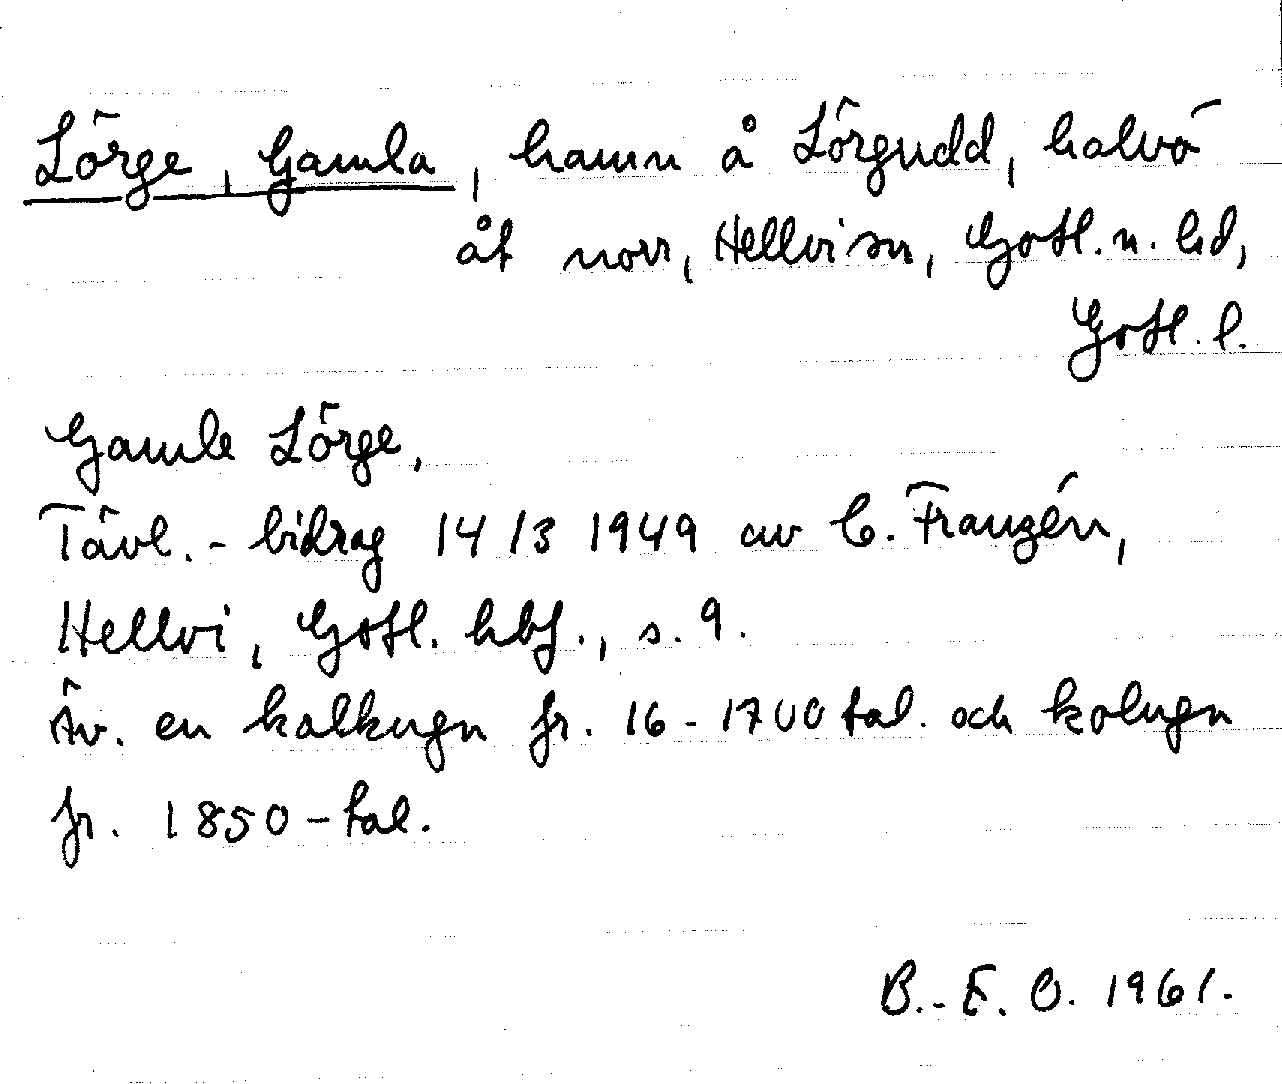 Lörge, Gamla, hamn å Lörgudd, halvö
åt norr, Hellvi sn, Gotl. n. hd,
Gotl. l.
Gamle Lörge,
Tävl.-bidrag 14/3 1949 av C. Franzén,
Hellvi, Gotl. hbf., s. 9.
Äv. en kalkugn fr. 16-1700 tal. och kolugn
fr. 1850-tal.
B.-E. O. 1961.